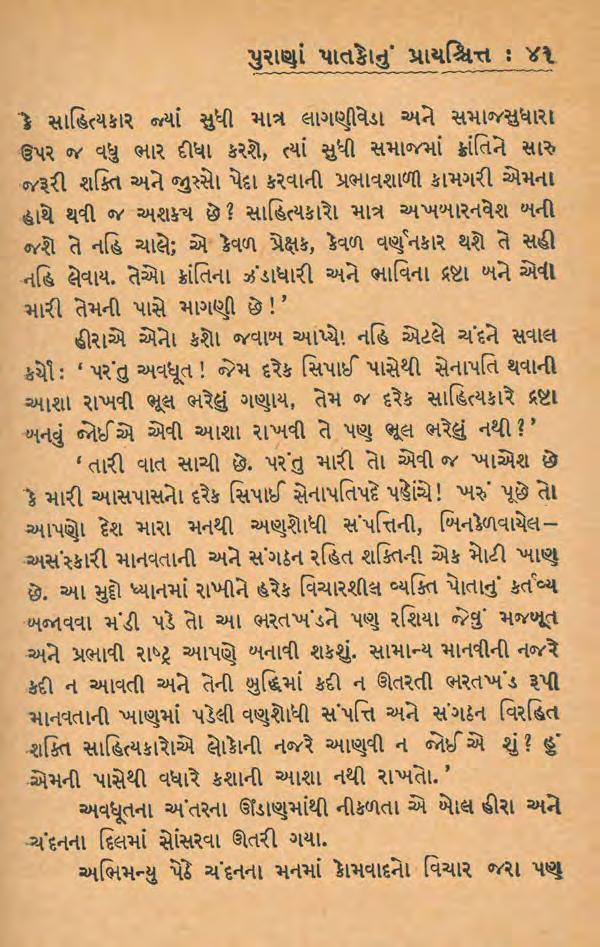 પુરાણાં પાતકોનું પ્રાયશ્ચિત્ત : ૪૧
કે સાહિત્યકાર જ્યાં સુધી માત્ર લાગણીવેડા અને સમાજસુધારા
ઉપર જ વધુ ભાર દીધા કરશે, ત્યાં સુધી સમાજમાં ક્રાંતિને સારુ
જરૂરી શક્તિ અને જુસ્સો પેદા કરવાની પ્રભાવશાળી કામગરી એમના
હાથે થવી જ અશક્ય છે? સાહિત્યકારો માત્ર અખબારનવેશ બની
જશે તે નહિ ચાલે; એ કેવળ પ્રેક્ષક, કેવળ વર્ણનકાર થશે તે સહી
નહિ લેવાય. તેઓ ક્રાંતિના ઝંડાધારી અને ભાવિના દ્રષ્ટા બને એવી
મારી તેમની પાસે માગણી છે!’
હીરાએ એનો કશો જવાબ આપ્યો નહિ એટલે ચંદને સવાલ
કર્યો: ‘પરંતુ અવધૂત! જેમ દરેક સિપાઈ પાસેથી સેનાપતિ થવાની
આશા રાખવી ભૂલ ભરેલું ગણાય, તેમ જ દરેક સાહિત્યકારે દ્રષ્ટા
બનવું જોઈએ એવી આશા રાખવી તે પણ ભૂલ ભરેલું નથી?’
‘તારી વાત સાચી છે. પરંતુ મારી તો એવી જ ખાએશ છે
કે મારી આસપાસનો દરેક સિપાઈ સેનાપતિપદે પહોંચે! ખરું પૂછે તો
આપણો દેશ મારા મનથી અણશોધી સંપત્તિની, બિનકેળવાયેલ–
અસંસ્કારી માનવતાની અને સંગઠન રહિત શક્તિની એક મોટી ખાણ
છે. આ મુદ્દો ધ્યાનમાં રાખીને હરેક વિચારશીલ વ્યક્તિ પોતાનું કર્તવ્ય
બજાવવા મંડી પડે તો આ ભરતખંડને પણ રશિયા જેવું મજબૂત
અને પ્રભાવી રાષ્ટ્ર આપણે બનાવી શકશું. સામાન્ય માનવીની નજરે
કદી ન આવતી અને તેની બુદ્ધિમાં કદી ન ઊતરતી ભરતખંડ રૂપી
માનવતાની ખાણમાં પડેલી વણશોધી સંપત્તિ અને સંગઠન વિરહિત
શક્તિ સાહિત્યકારોએ લોકોની નજરે આણવી ન જોઈએ શું? હું
એમની પાસેથી વધારે કશાની આશા નથી રાખતો.’
અવધૂતના અંતરના ઊંડાણમાંથી નીકળતા એ બોલ હીરા અને
ચંદનના દિલમાં સોંસરવા ઊતરી ગયા.
અભિમન્યુ પેઠે ચંદનના મનમાં કોમવાદનો વિચાર જરા પણ